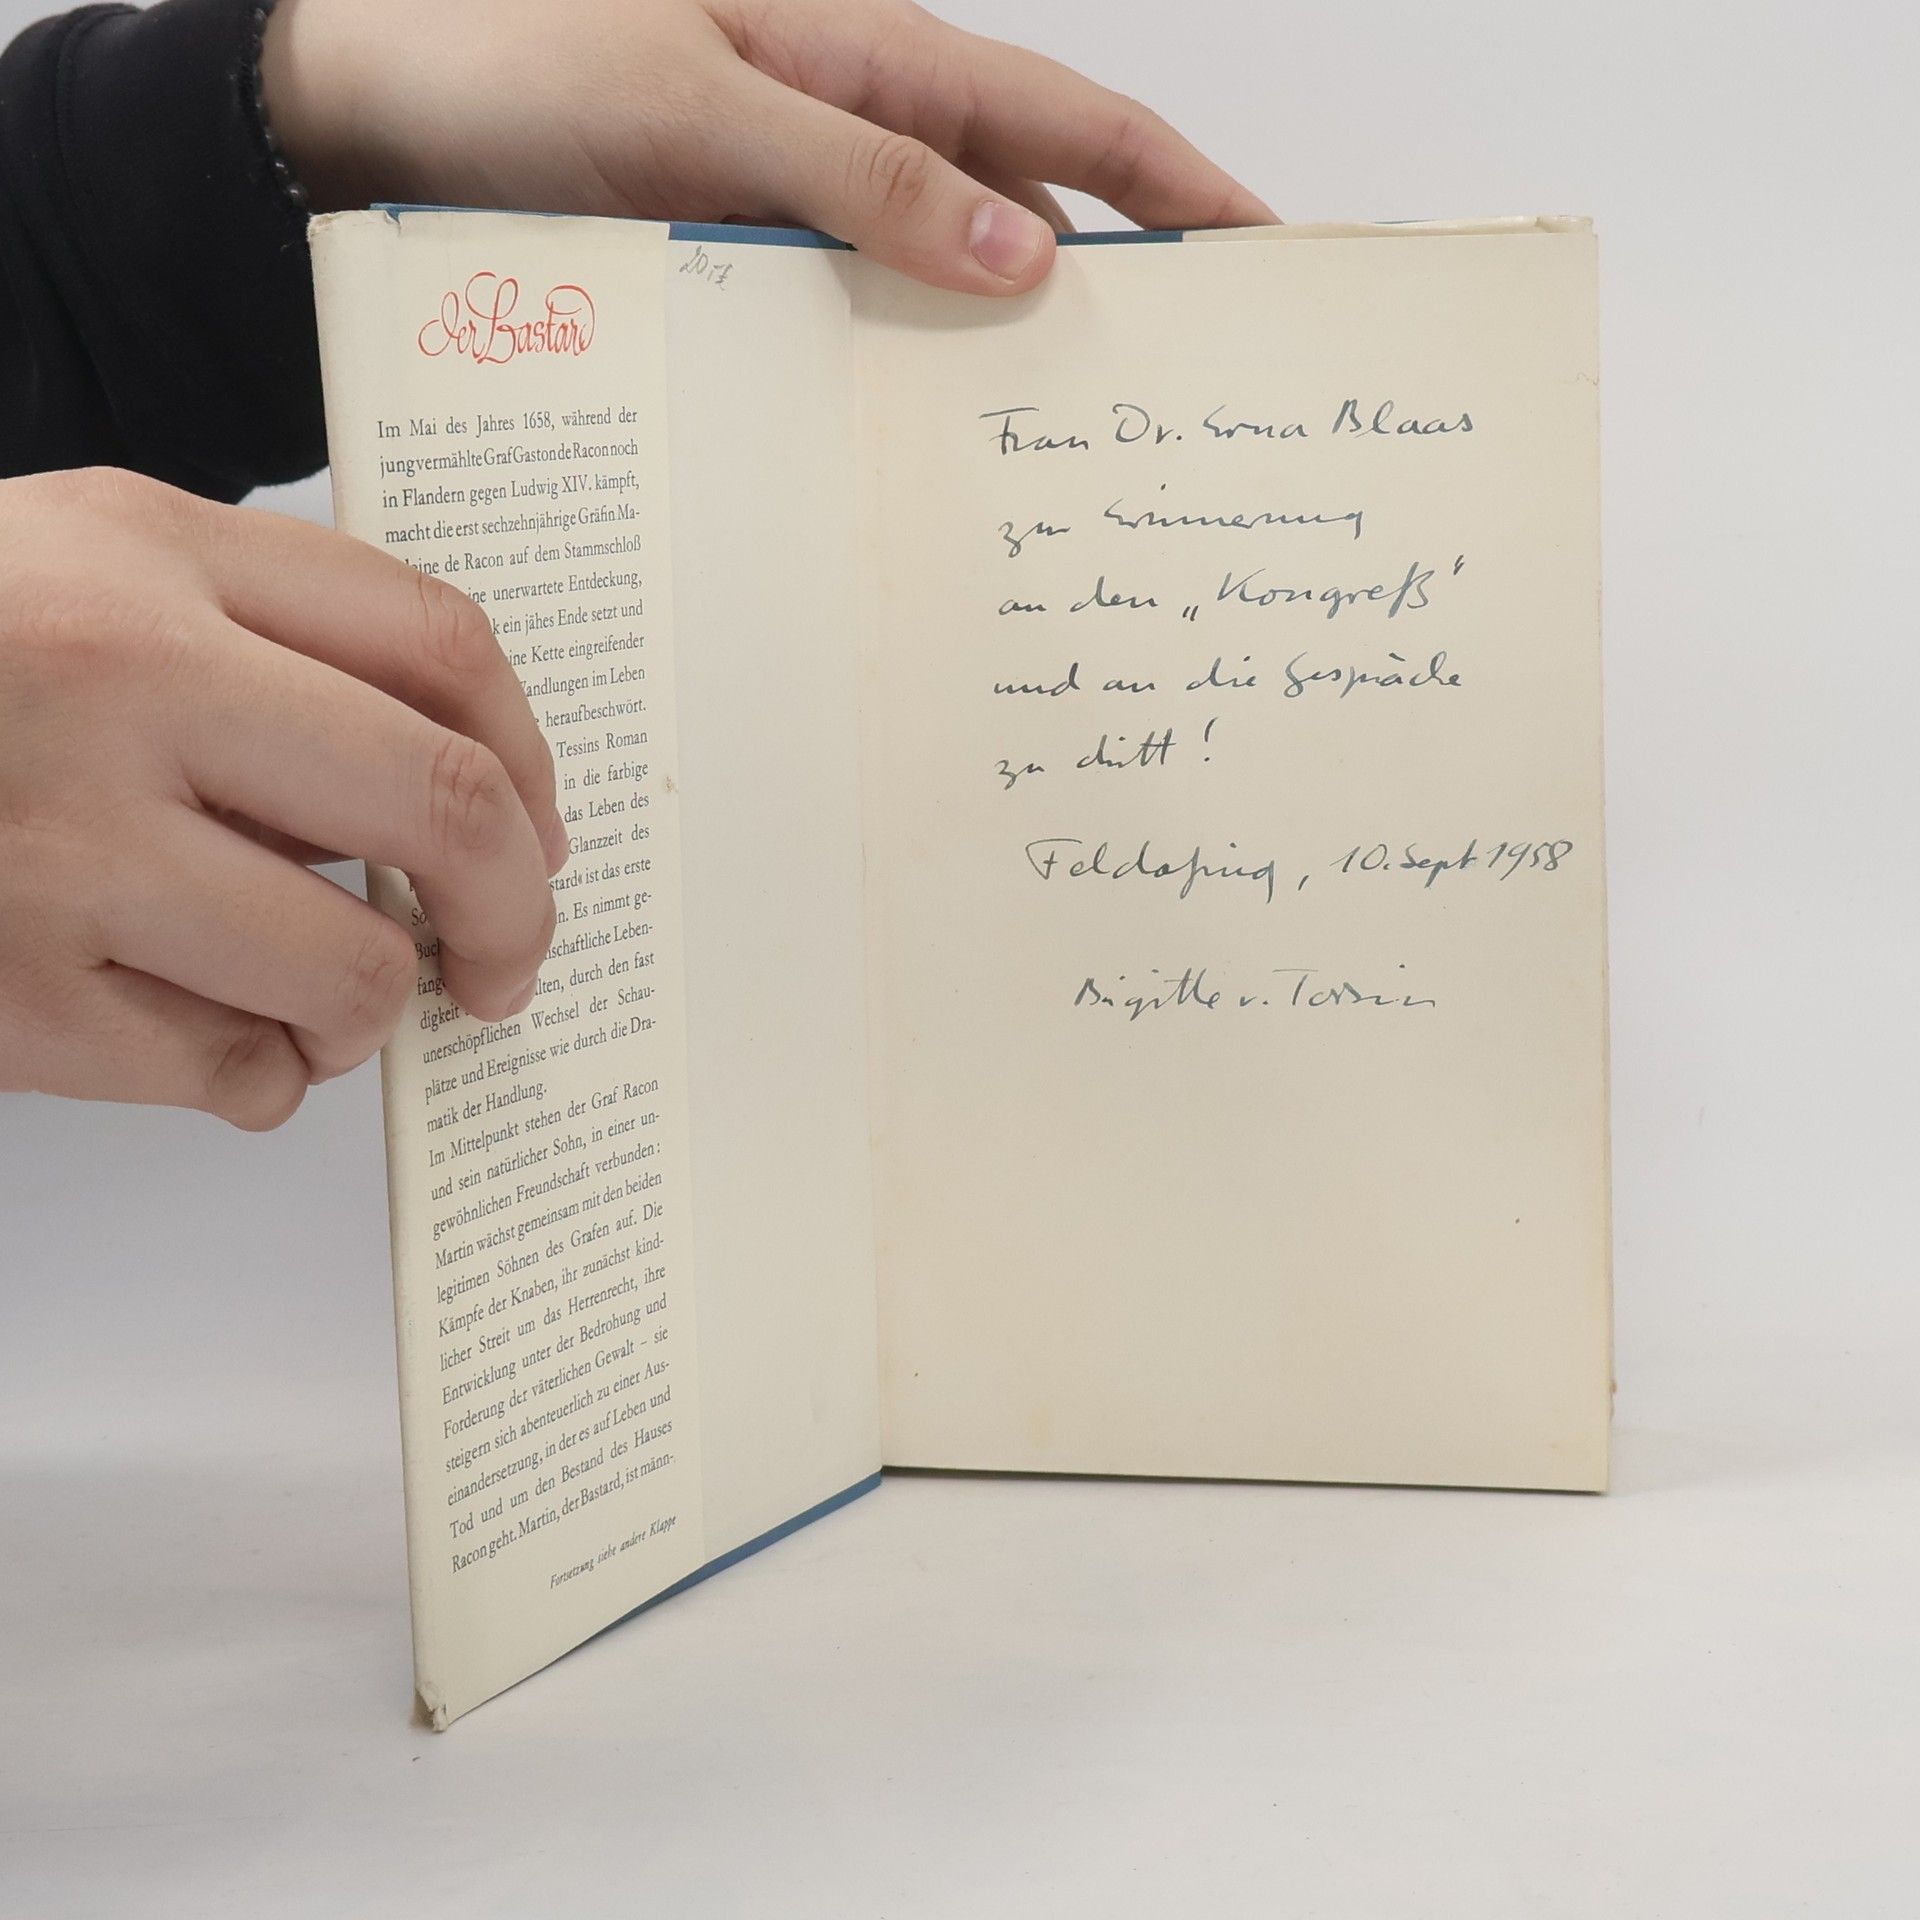 der Bastard
Im Mai des Jahres 1658, während der
jungvermählte Graf Gaston de Racon noch
in Flandern gegen Ludwig XIV. kämpft,
macht die erst sechzehnjährige Gräfin Ma-
de Racon auf dem Stammschloß
unerwartete Entdeckung,
ein jähes Ende setzt und
ine Kette eingreifender
andlungen im Leben
heraufbeschwört.
Tessins Roman
in die farbige
das Leben des
Glanzzeit des
stard« ist das erste
n. Es nimmt ge-
schaftliche Leben-
digkeit lten, durch den fast
unerschöpflichen Wechsel der Schau-
plätze und Ereignisse wie durch die Dra-
matik der Handlung.
Im Mittelpunkt stehen der Graf Racon
und sein natürlicher Sohn, in einer un-
gewöhnlichen Freundschaft verbunden:
Martin wächst gemeinsam mit den beiden
legitimen Söhnen des Grafen auf. Die
Kämpfe der Knaben, ihr zunächst kind-
licher Streit um das Herrenrecht, ihre
Entwicklung unter der Bedrohung und
Forderung der väterlichen Gewalt – sie
steigern sich abenteuerlich zu einer Aus-
einandersetzung, in der es auf Leben und
Tod und um den Bestand des Hauses
Racon geht. Martin, der Bastard, ist männ-
Fortsetzung siehe andere Klappe
Frau Dr. Erna Blaas
zur Erinnerung
an den „Kongreß“
und an die Gespräche
zu dritt!
Feldafing, 10. Sept 1958
Brigitte v. Tessin